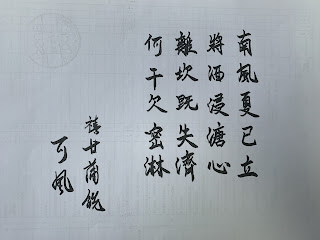 南風夏已立
將酒浸溏心
離坎既失濟
何干欠密淋
甘蒲銳
可風